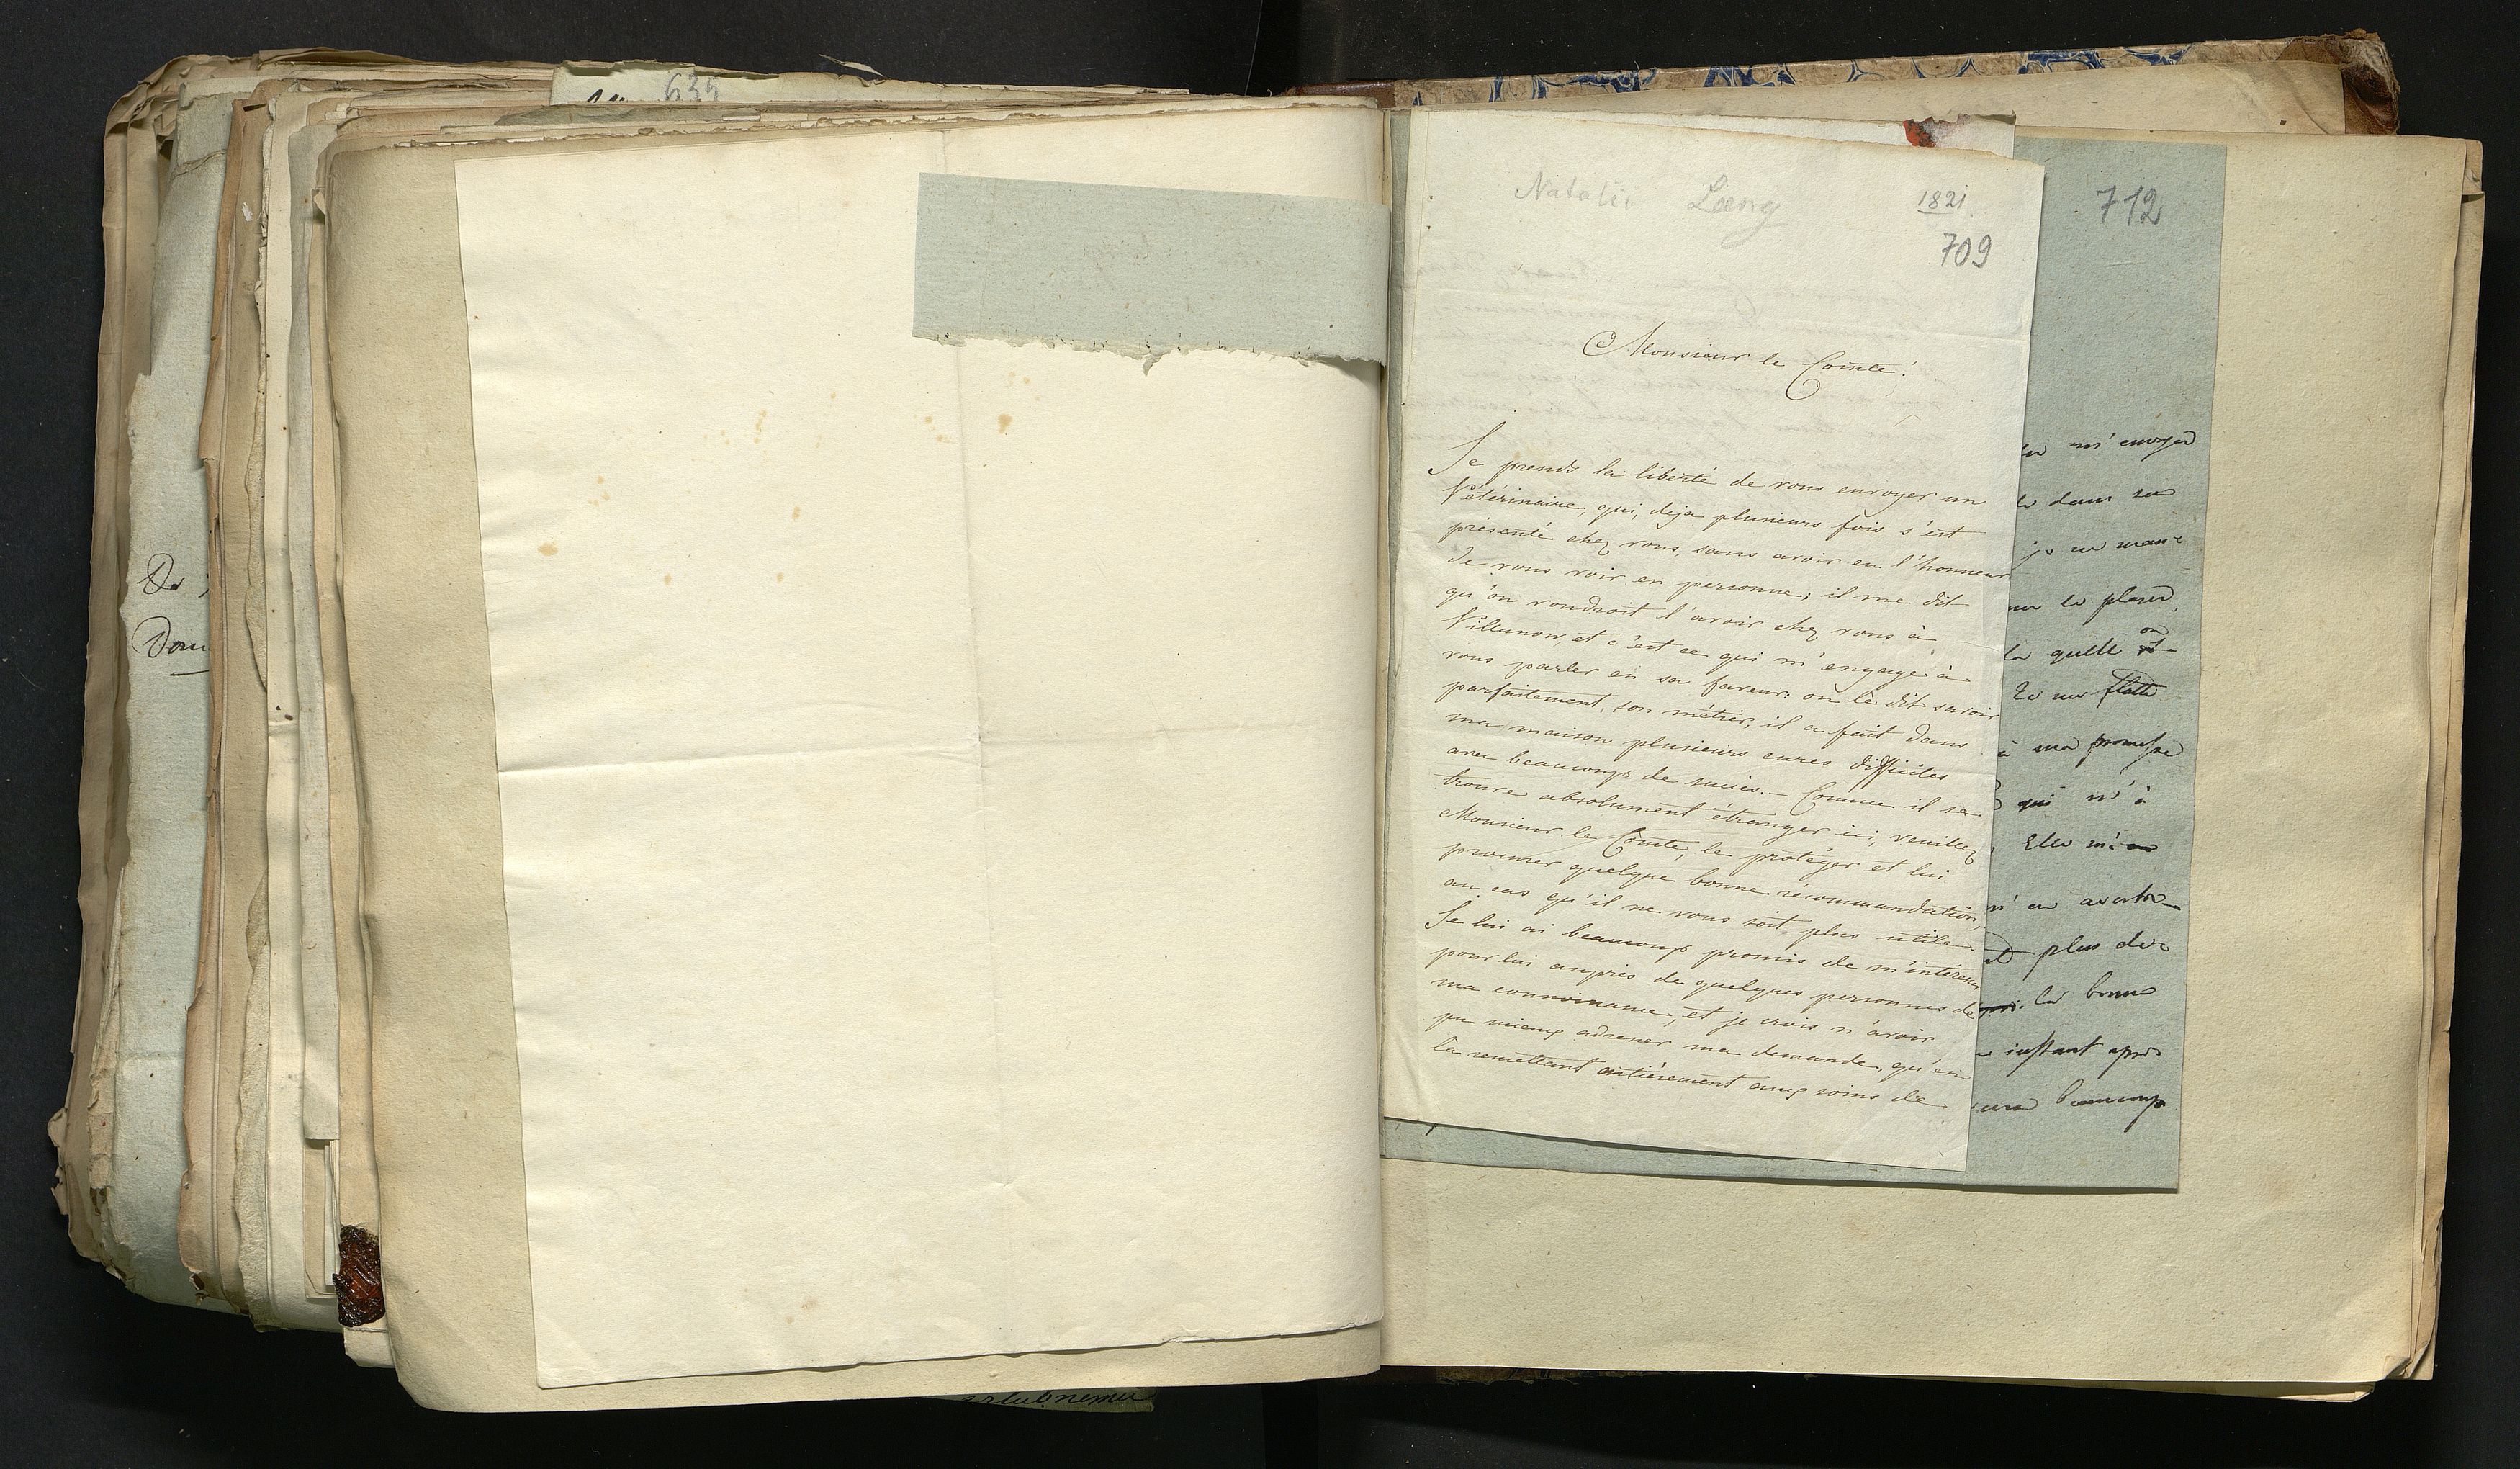 635
Do
Dom
Natalii Lang
1821
709
712
Monsieur le Comte!
Je prends la liberté de vous envoyer un
Vétérinaire, qui, deja plusieurs fois s'est
présenté chez vous, sans avoir eu l'honneur
de vous voir en personne; il me dit
qu'on voudroit l'avoir chez vous à
Villanow, et c'est ce qui m'engage à
vous parler en sa faveur; on le dit savoir
parfaitement, son métier, il a fait dans
ma maison plusieurs cures difficiles
avec beaucoup de succès. – Comme il se
trouve absolument étranger ici, veuillez
Monsieur le Comte, le protéger et lui
procurer quelque bonne récommandation,
au cas qu'il ne vous soit plus utile.
Je lui ai beaucoup promis de m'intéresser
pour lui auprès de quelques personnes de
ma connoissance, et je crois n'avoir
pu mieux adresser ma demande, qu'en
la remettant entièrement aux soins de
m'envoyer
dans sa
je ne man-
le placer,
la quelle on
Et me flatte
à ma promesse
qui m'à
Elle m'
m'en avertir
plus de
la bonne
instant après
beaucoup